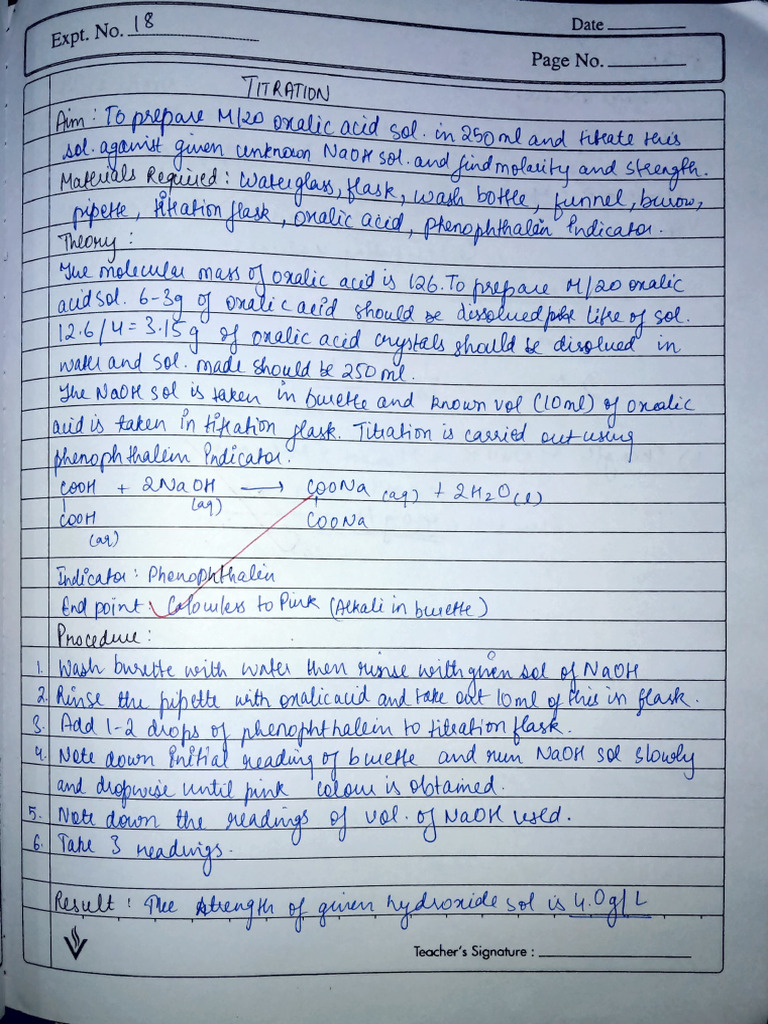 Expt. No. 18
Date
Page No.
TITRATION
Aim : To prepare M/20 oxalic acid sol. in 250 ml and titrate this
sol. against given unknown NaOH sol. and find molarity and strength.
Materials Required : Waterglass, flask, wash bottle, funnel, burow,
pipette, titration flask, oxalic acid, phenophthalein Indicator.
Theory :
The molecular mass of oxalic acid is 126. To prepare M/20 oxalic
acid sol. 6-3g of oxalic acid should be dissolved per litre of sol.
12.6/4 = 3.15 g of oxalic acid crystals should be disolved in
water and sol. made should be 250 ml.
The NaOH sol is taken in burette and known vol (10ml) of oxalic
acid is taken in titration flask. Titration is carried out using
phenophthalein Indicator.
COOH + 2NaOH → COONa (aq) + 2H2O(l)
(aq)
COOH COONa
(aq)
Indicator : Phenophthalein
End point : Colourless to Pink (Alkali in burette)
Procedure :
1. Wash burette with water then rinse with given sol of NaOH
2. Rinse the pipette with oxalic acid and take out 10ml of this in flask.
3. Add 1-2 drops of phenophthalein to titration flask.
4. Note down initial reading of burette and run NaOH sol slowly
and dropwise until pink colour is obtained.
5. Note down the readings of vol. of NaOH used.
6. Take 3 readings.
Result : The strength of given hydroxide sol is 4.0g/L
Teacher's Signature :